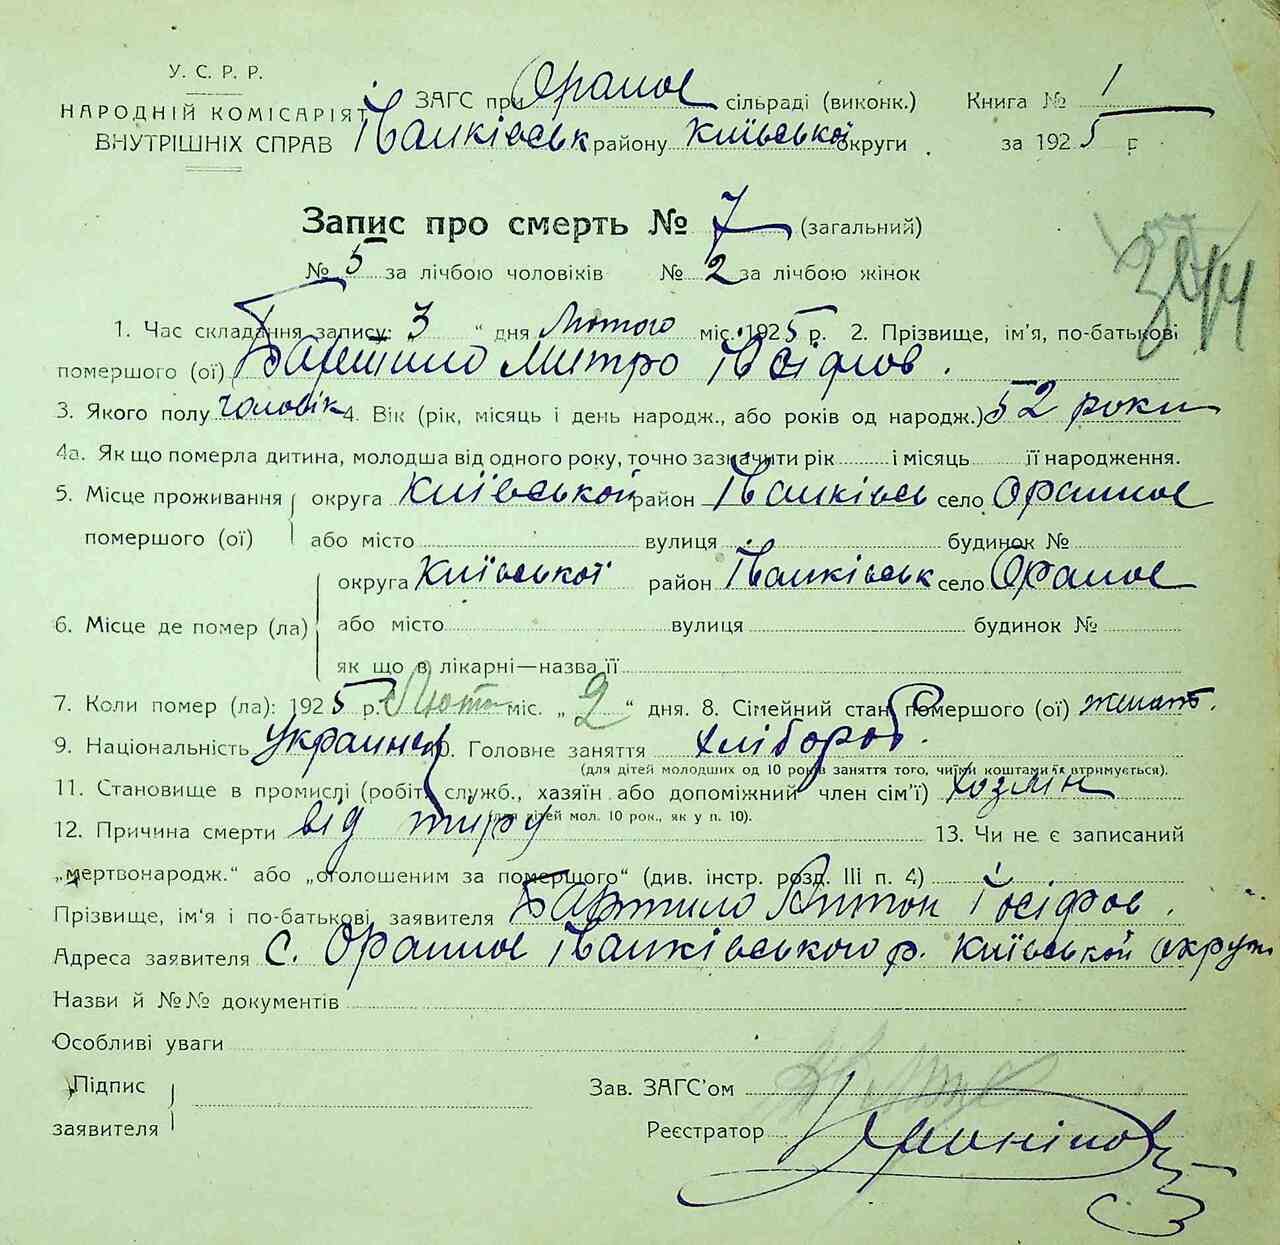 У. С. Р. Р.
НАРОДНІЙ КОМІСАРІЯТ
ВНУТРІШНІХ СПРАВ
ЗАГС при Оране сільраді (виконк.)
Іванківськ району Київської округи
Книга № 1
за 1925 г
Запис про смерть № 7 (загальний)
№ 5 за лічбою чоловіків № 2 за лічбою жінок
1. Час складання запису: 3 " дня Лютого міс. 1925 р. 2. Прізвище, ім'я, по-батькові
помершого (ої) Митро
3. Якого полу чоловік 4. Вік (рік, місяць і день народж., або років од народж.) 52 роки
4а. Як що померла дитина, молодша від одного року, точно зазначити рік і місяць її народження.
5. Місце проживання округа Київської район Іванківськ село Оране
помершого (ої) або місто вулиця будинок №
округа Київської район Іванківськ село Оране
6. Місце де помер (ла) або місто вулиця будинок №
як що в лікарні—назва її
7. Коли помер (ла): 1925 р. Лют міс. „ 2 " дня. 8. Сімейний стан помершого (ої) женат.
9. Національність Украинец 10. Головне заняття хлібороб.
(для дітей молодших од 10 років заняття того, чиїми коштами їх втримується).
11. Становище в промислі (робіт., служб., хазяїн або допоміжний член сім'ї) Хозяїн
(для дітей мол. 10 рок., як у п. 10).
12. Причина смерти від тифу 13. Чи не є записаний
„мертвонародж." або „оголошеним за помершого" (див. інстр. розд. III п. 4)
Прізвище, ім'я і по-батькові заявителя Бартило Антон Іосіфов.
Адреса заявителя С. Оране Іванківського р. Київської округи
Назви й №№ документів
Особливі уваги
Підпис
заявителя
Зав. ЗАГС'ом
Реєстратор